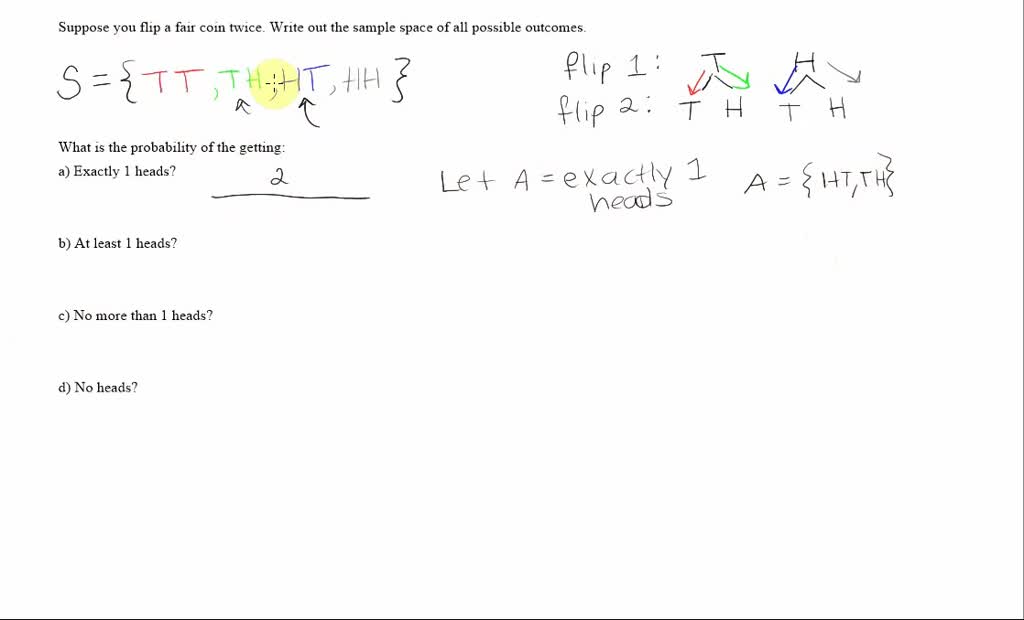 Suppose you flip a fair coin twice. Write out the sample space of all possible outcomes.
S = { TT, TH, HT, HH }
flip 1: T H
flip 2: T H T H
What is the probability of the getting:
a) Exactly 1 heads?
2
Let A = exactly 1
heads
A = {HT, TH}
b) At least 1 heads?
c) No more than 1 heads?
d) No heads?